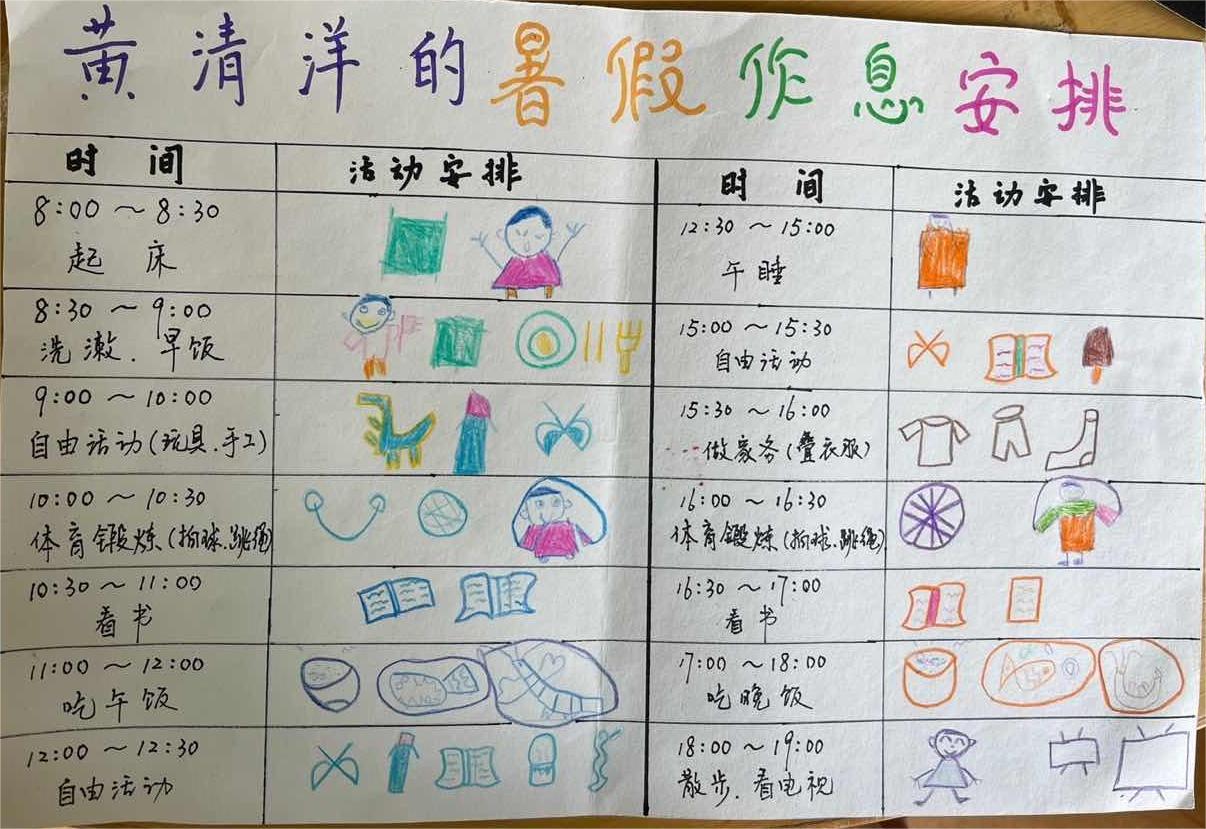 黄清洋的暑假作息安排
时 间
活动安排
8:00 ~ 8:30
起 床
8:30 ~ 9:00
洗漱. 早饭
9:00 ~ 10:00
自由活动(玩具.手工)
10:00 ~ 10:30
体育锻炼(拍球.跳绳)
10:30 ~ 11:00
看书
11:00 ~ 12:00
吃午饭
12:00 ~ 12:30
自由活动
时 间
活动安排
12:30 ~ 15:00
午睡
15:00 ~ 15:30
自由活动
15:30 ~ 16:00
做家务(叠衣服)
16:00 ~ 16:30
体育锻炼(拍球.跳绳)
16:30 ~ 17:00
看书
17:00 ~ 18:00
吃晚饭
18:00 ~ 19:00
散步. 看电视